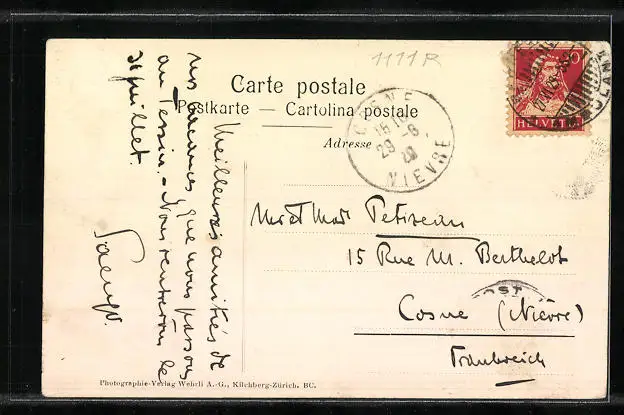 1111R
Carte postale
Postkarte — Cartolina postale
Adresse
COSNE
15 15
29 -6
NIEVRE
HELVETIA
Meilleures amitiés de
nos vacances, que nous passons
au Tessin. - Nous rentrerons le
juillet.
Mr et Mad Petireau
15 Rue M. Berthelot
Cosne (Nièvre)
Frankreich
Photographie-Verlag Wehrli A.-G., Kilchberg-Zürich. BC.